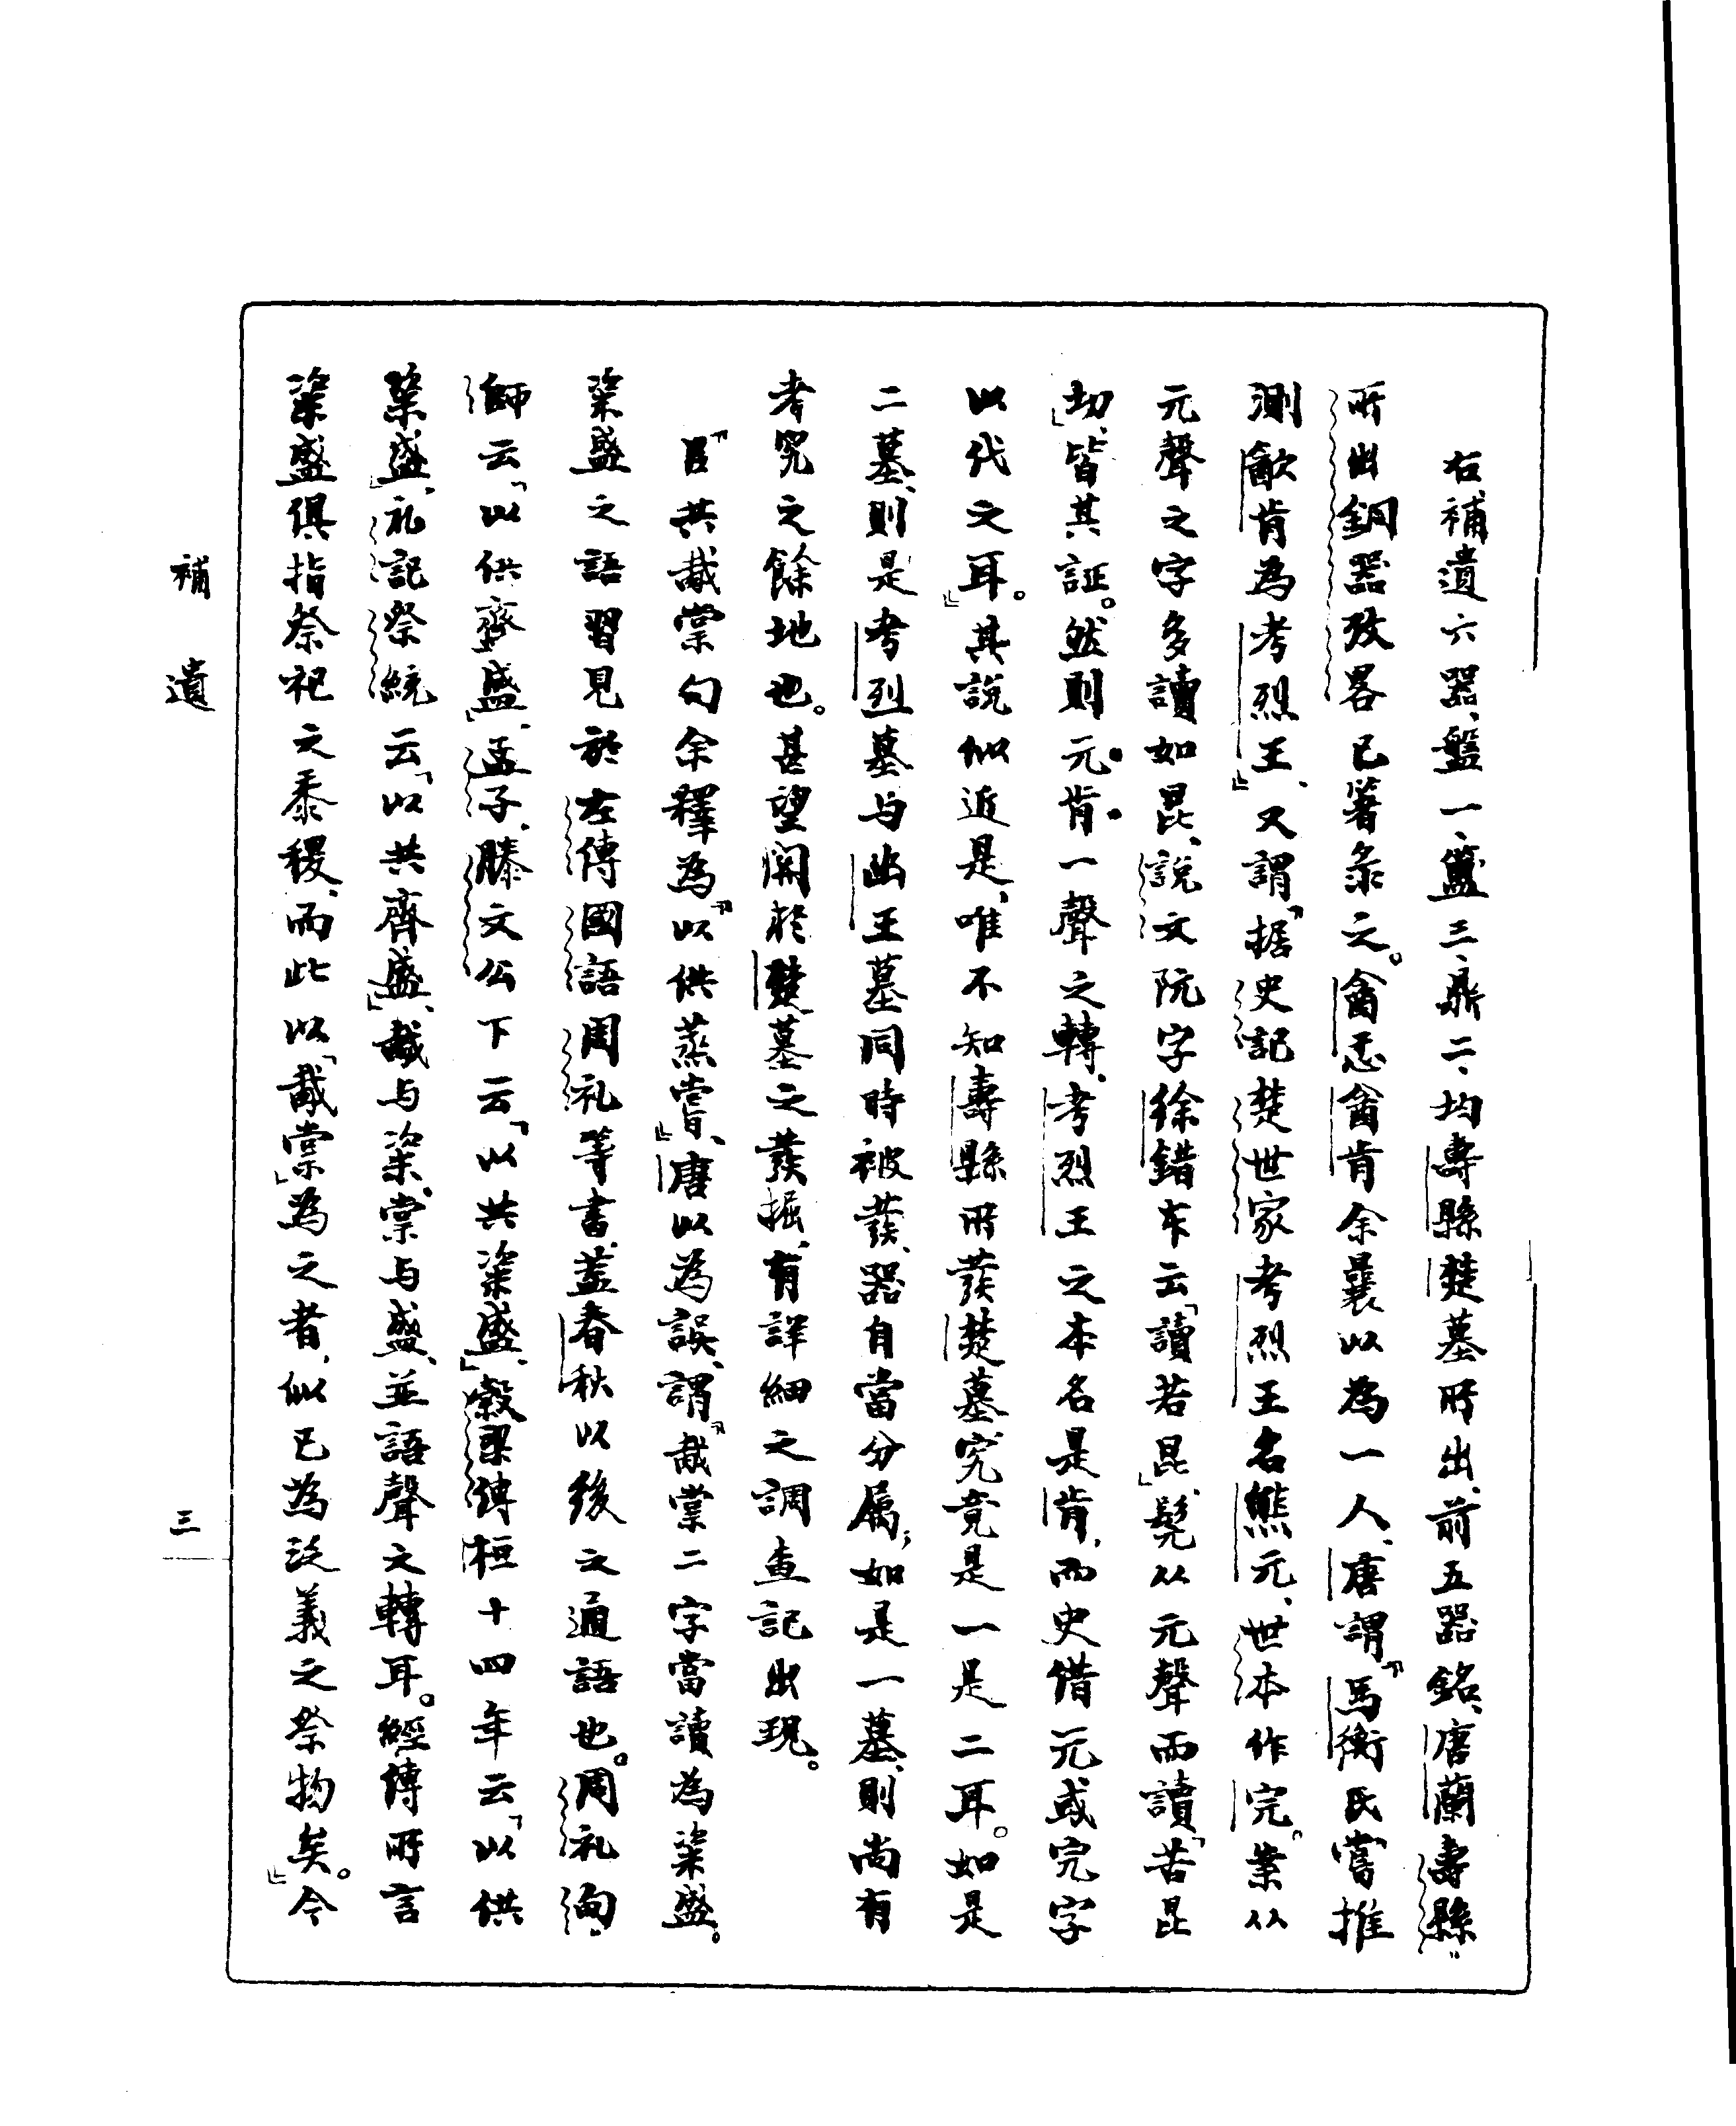 右補遺六器、盤一、簠三、鼎二、均壽縣楚墓所出、前五器銘、唐蘭壽縣
所出銅器攷畧已箸彔之。酓忎酓肯余曩以為一人、唐謂『馬衡氏嘗推
測酓肯為考烈王』、又謂『据史記楚世家考烈王名熊元、世本作完。案从
元聲之字多讀如昆、說文阮字徐鍇本云「讀若昆」、髡从元聲而讀「苦昆
切」、皆其証。然則元肯一聲之轉、考烈王之本名是肯、而史借元或完字
以代之耳。』其說似近是、唯不知壽縣所發楚墓究竟是一是二耳。如是
二墓、則是考烈墓与幽王墓同時被發、器自當分屬；如是一墓、則尚有
考究之餘地也。甚望關於楚墓之發掘、有詳細之調查記出現。
『㠯共胾棠』句余釋為『以供蒸嘗』、唐以為誤、謂『胾棠二字當讀為粢盛。
粢盛之語習見於左傳國語周礼等書、蓋春秋以後之通語也。周礼甸
師云「以供齍盛」、孟子滕文公下云「以共粢盛」、穀梁傳桓十四年云「以供
粢盛」、礼記祭統云「以共齊盛」、胾与粢、棠与盛、並語聲之轉耳。經傳所言
粢盛俱指祭祀之黍稷、而此以「胾棠」為之者、似已為泛義之祭物矣。』今
補遺
三